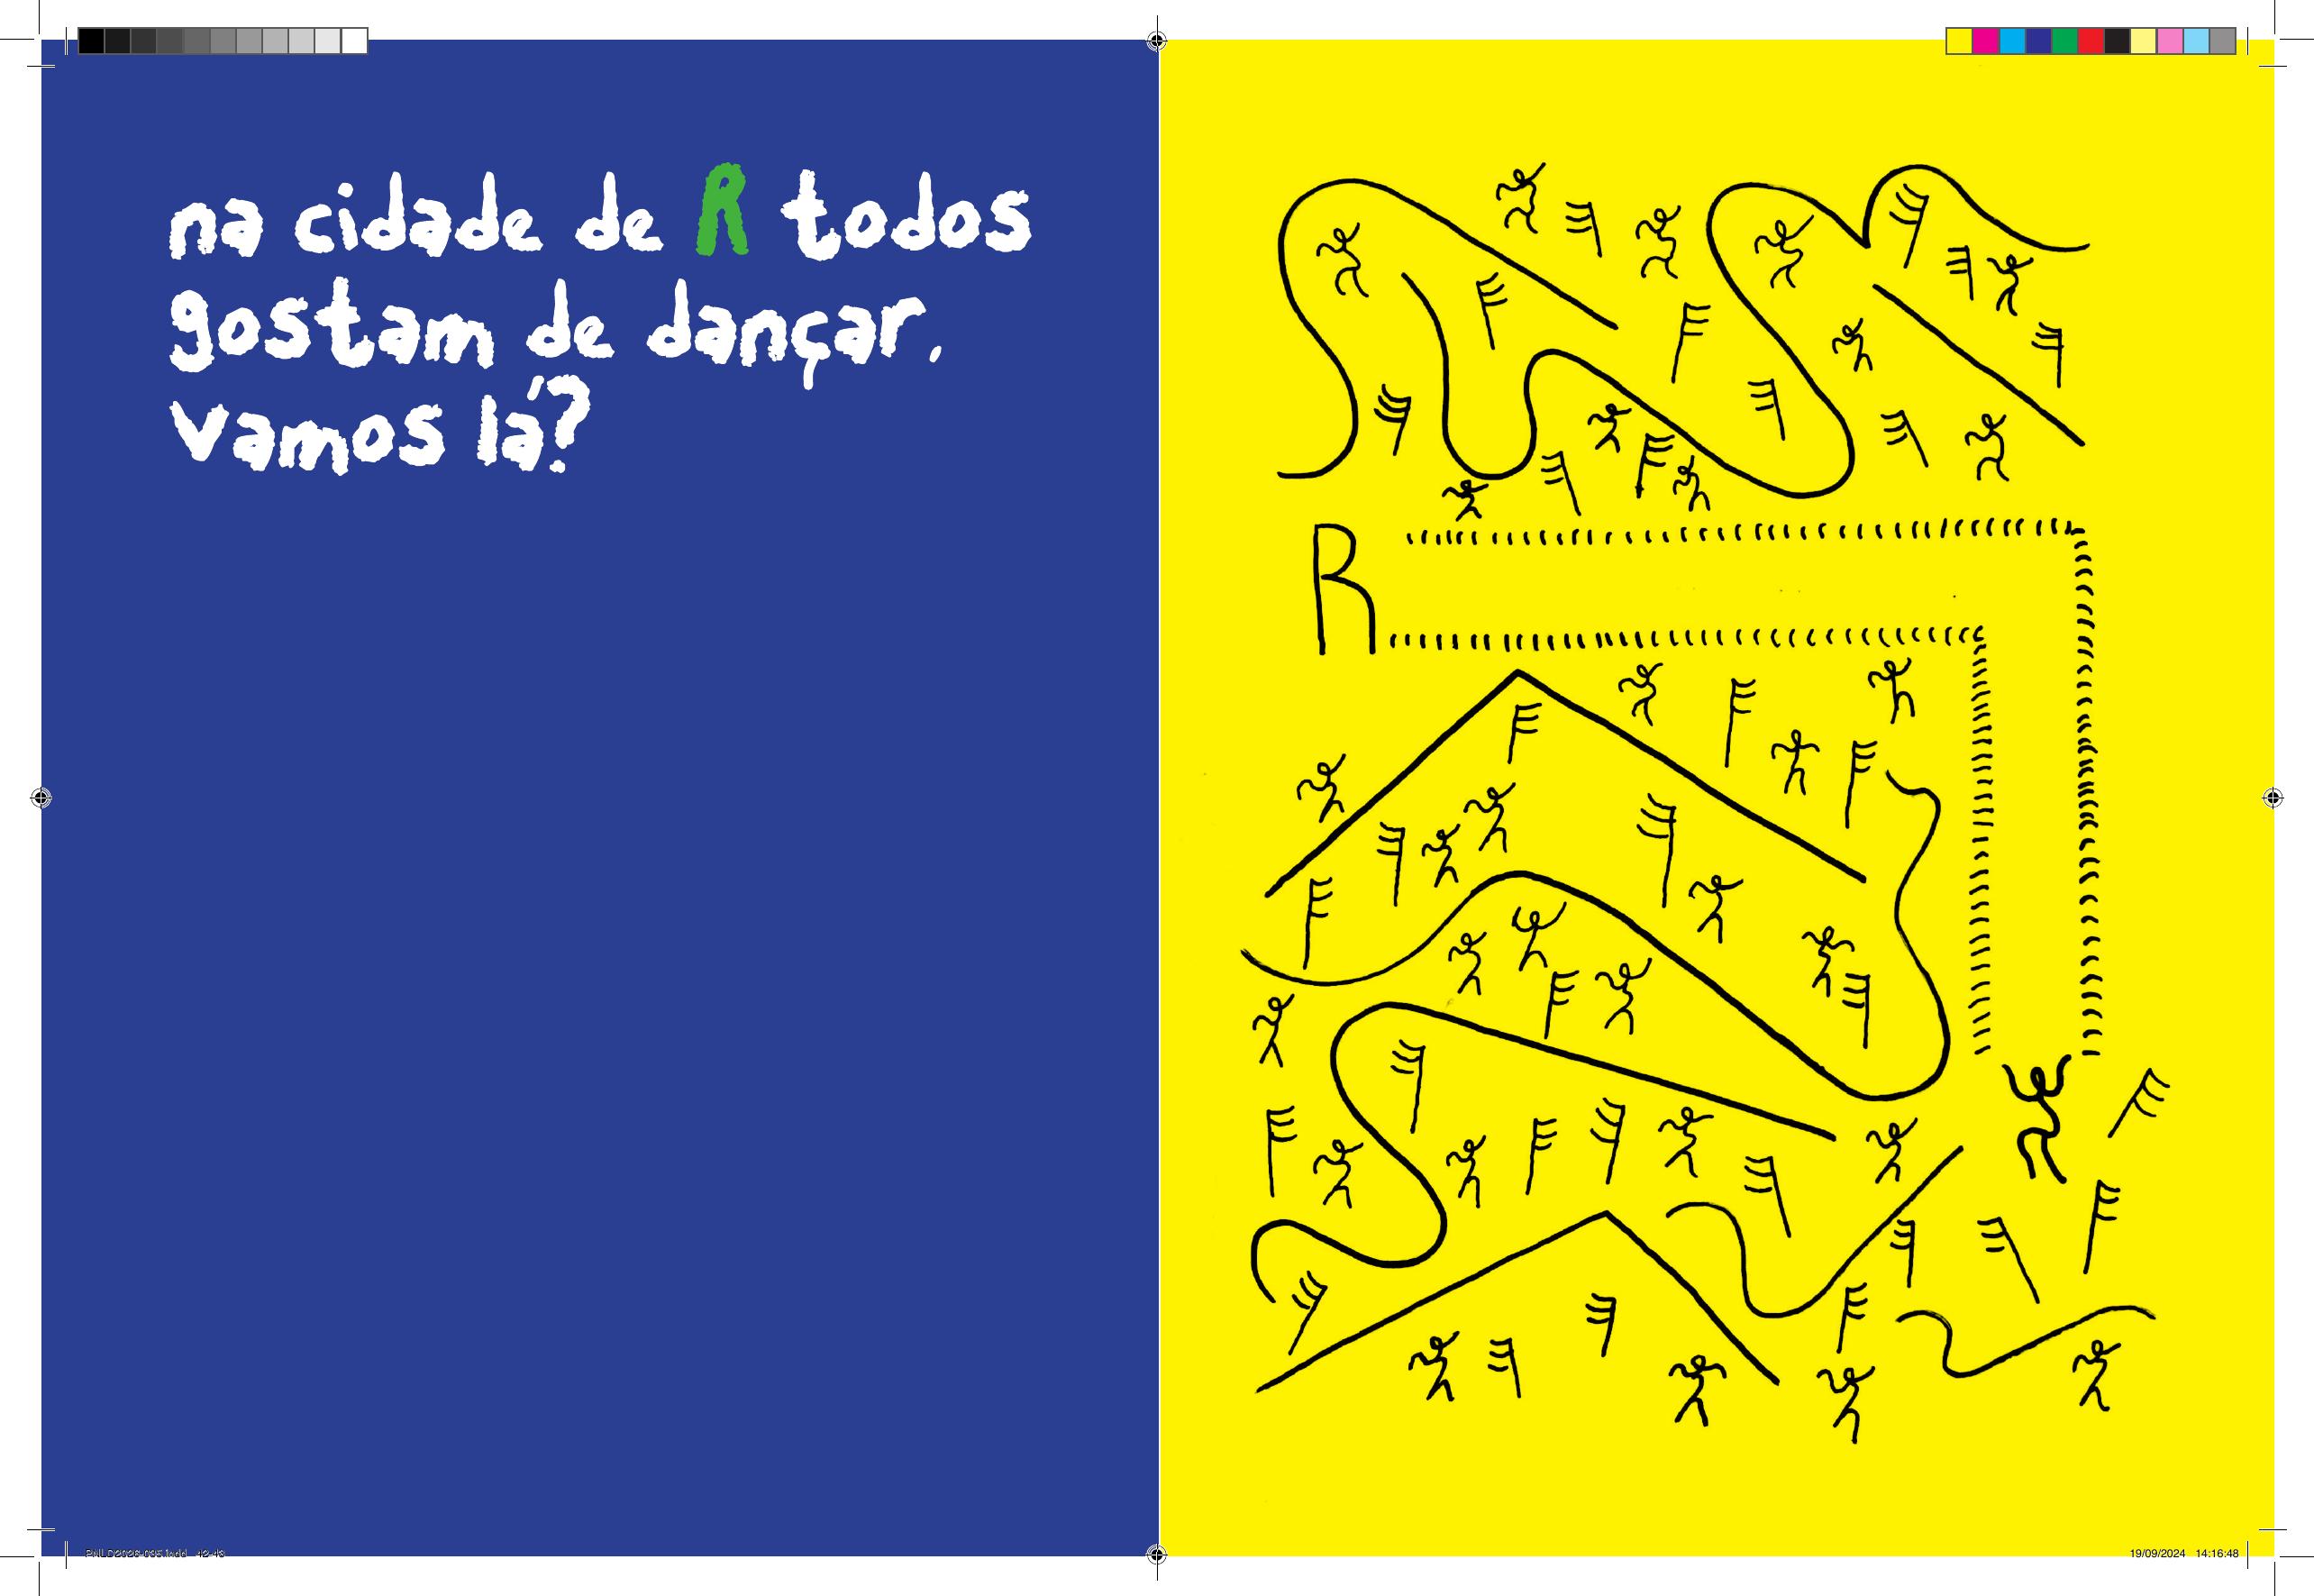 na cidade de R todos
gostam de dançar.
vamos lá?
R
PNLD2026-035.indd 42-43
19/09/2024 14:16:48